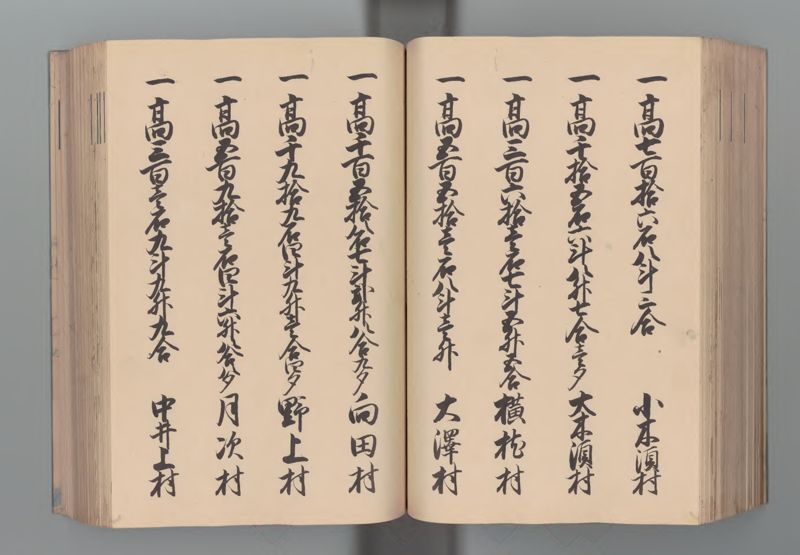 一高七百拾六石八斗三合 小木須村
一高千拾五石六斗八升七合壱夕 大木須村
一高三百六拾壱石七斗五升五合 横枕村
一高五百五拾壱石八斗壱升 大澤村
一高千百五拾八石七斗弐升八合九夕 向田村
一高千九拾九石四斗九升壱合四夕 野上村
一高五百九拾壱石四斗六升 月次村
一高三百壱石九斗九升九合 中井上村